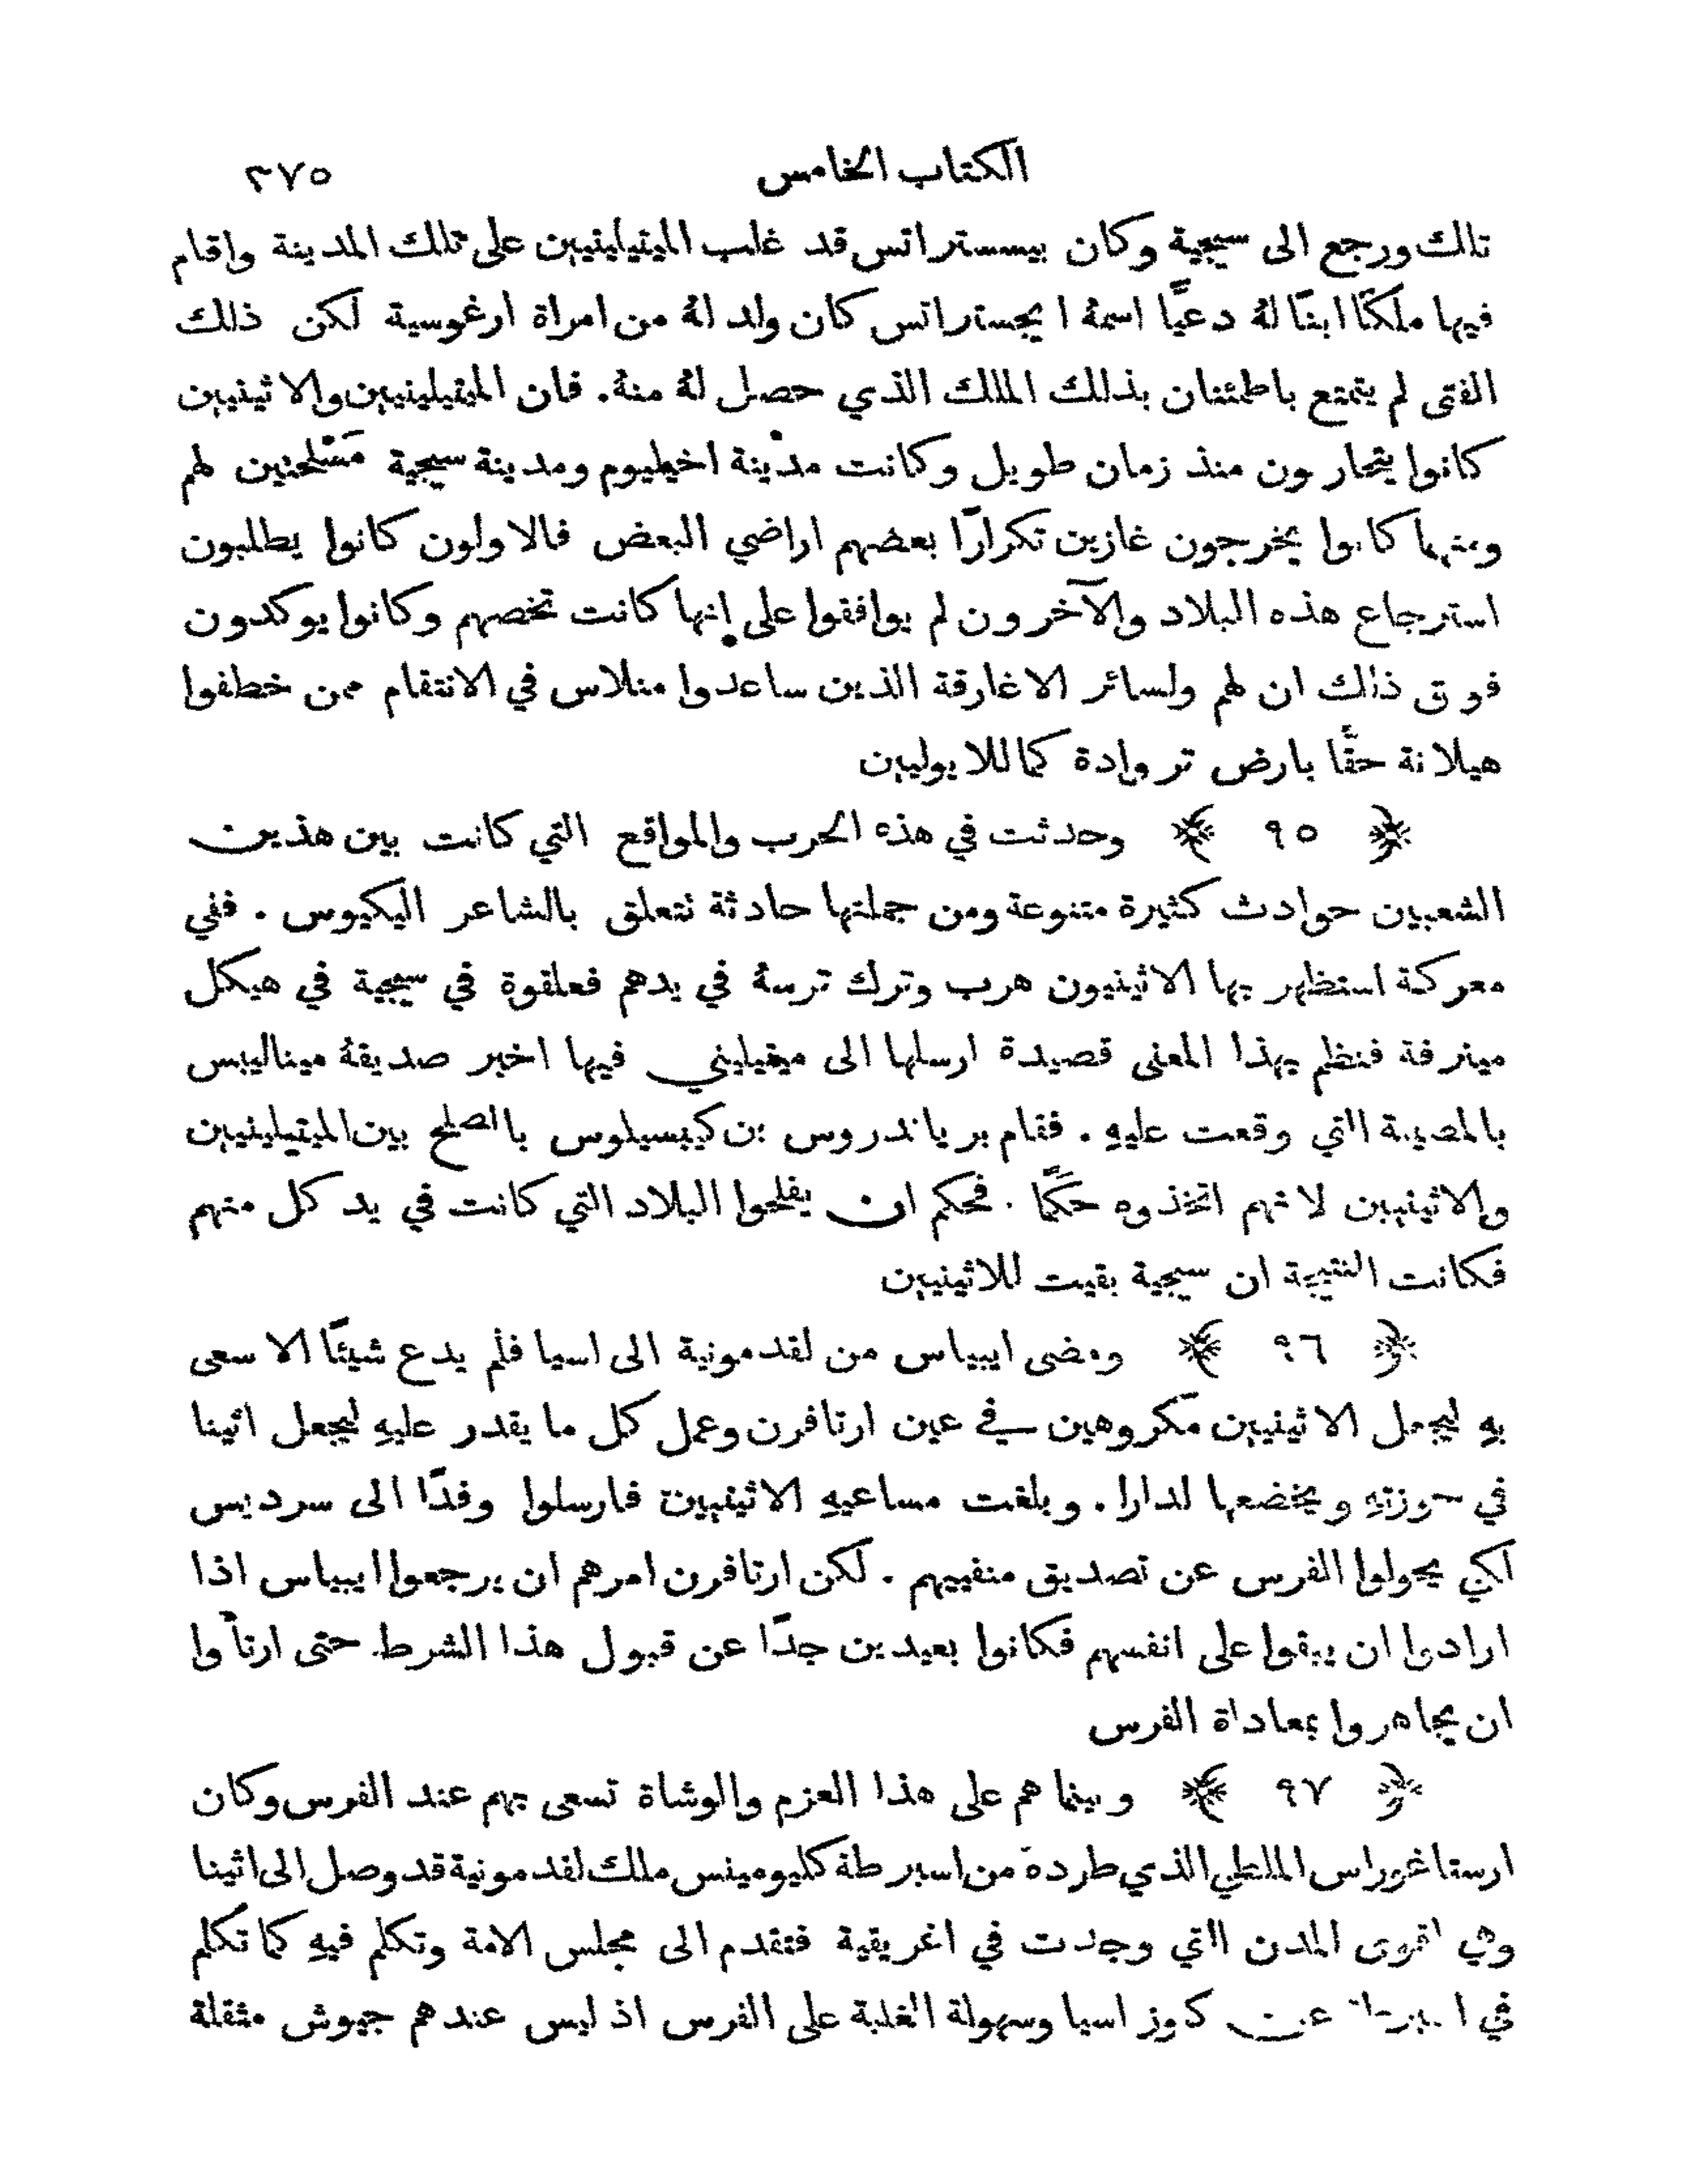 الكتاب الخامس ٢٧٥
تلك ورجع الى سيجية وكان بيسستراتس قد غلب الميتيلينيين على تلك المدينة واقام
فيها ملكًا ابنًا لهُ دعيًّا اسمهُ ايجستراتس كان ولد لهُ من امراة ارغوسية لكن ذلك
الفتى لم يتمتع باطمئنان بذلك الملك الذي حصل لهُ منهُ. فان الميتيلينيين والاثينيين
كانوا يتحاربون منذ زمان طويل وكانت مدينة اخيليوم ومدينة سيجية مَسْلحتين لهم
ومنهما كانوا يخرجون غازين تكرارًا بعضهم اراضي البعض فالاولون كانوا يطلبون
استرجاع هذه البلاد والآخرون لم يوافقوا على إنها كانت تخصهم وكانوا يوكدون
فوق ذلك ان لهم ولسائر الاغارقة الذين ساعدوا منلاس في الانتقام ممن خطفوا
هيلانة حقًّا بارض تروادة كما للايوليين
﴿ ٩٥ ﴾ وحدثت في هذه الحرب والمواقع التي كانت بين هذين
الشعبين حوادث كثيرة متنوعة ومن جملتها حادثة نتعلق بالشاعر اليكيوس. ففي
معركة استظهر بها الاثينيون هرب وترك ترسهُ في يدهم فعلقوهُ في سيجية في هيكل
مينرفة فنظم بهذا المعنى قصيدة ارسلها الى ميتيليني فيها اخبر صديقهُ ميناليبس
بالمصيبة التي وقعت عليهِ. فقام برياندروس بن كيبسيلوس بالصلح بين الميتيلينيين
والاثينيين لانهم اتخذوه حَكَمًا. فحكم ان يفلحوا البلاد التي كانت في يد كل منهم
فكانت النتيجة ان سيجية بقيت للاثينيين
﴿ ٩٦ ﴾ ومضى ايبياس من لقدمونية الى اسيا فلم يدع شيئًا الا سعى
بهِ ليجعل الاثينيين مكروهين في عين ارتافرن وعمل كل ما يقدر عليهِ ليجعل اثينا
في حوزتهِ ويخضعها لدارا. وبلغت مساعيهِ الاثينيين فارسلوا وفدًا الى سرديس
لكي يحولوا الفرس عن تصديق منفييهم. لكن ارتافرن امرهم ان يرجعوا ايبياس اذا
ارادوا ان يبقوا على انفسهم فكانوا بعيدين جدًّا عن قبول هذا الشرط حتى ارتأوا
ان يجاهروا بمعاداة الفرس
﴿ ٩٧ ﴾ وبينما هم على هذا العزم والوشاة تسعى بهم عند الفرس وكان
ارستاغوراس الملطي الذي طردهُ من اسبرطة كليومينس ملك لقدمونية قد وصل الى اثينا
وهي اقوى المدن التي وجدت في اغريقية فتقدم الى مجلس الامة وتكلم فيهِ كما تكلم
في اسبرطة عن كنوز اسيا وسهولة الغلبة على الفرس اذ ليس عندهم جيوش مثقلة